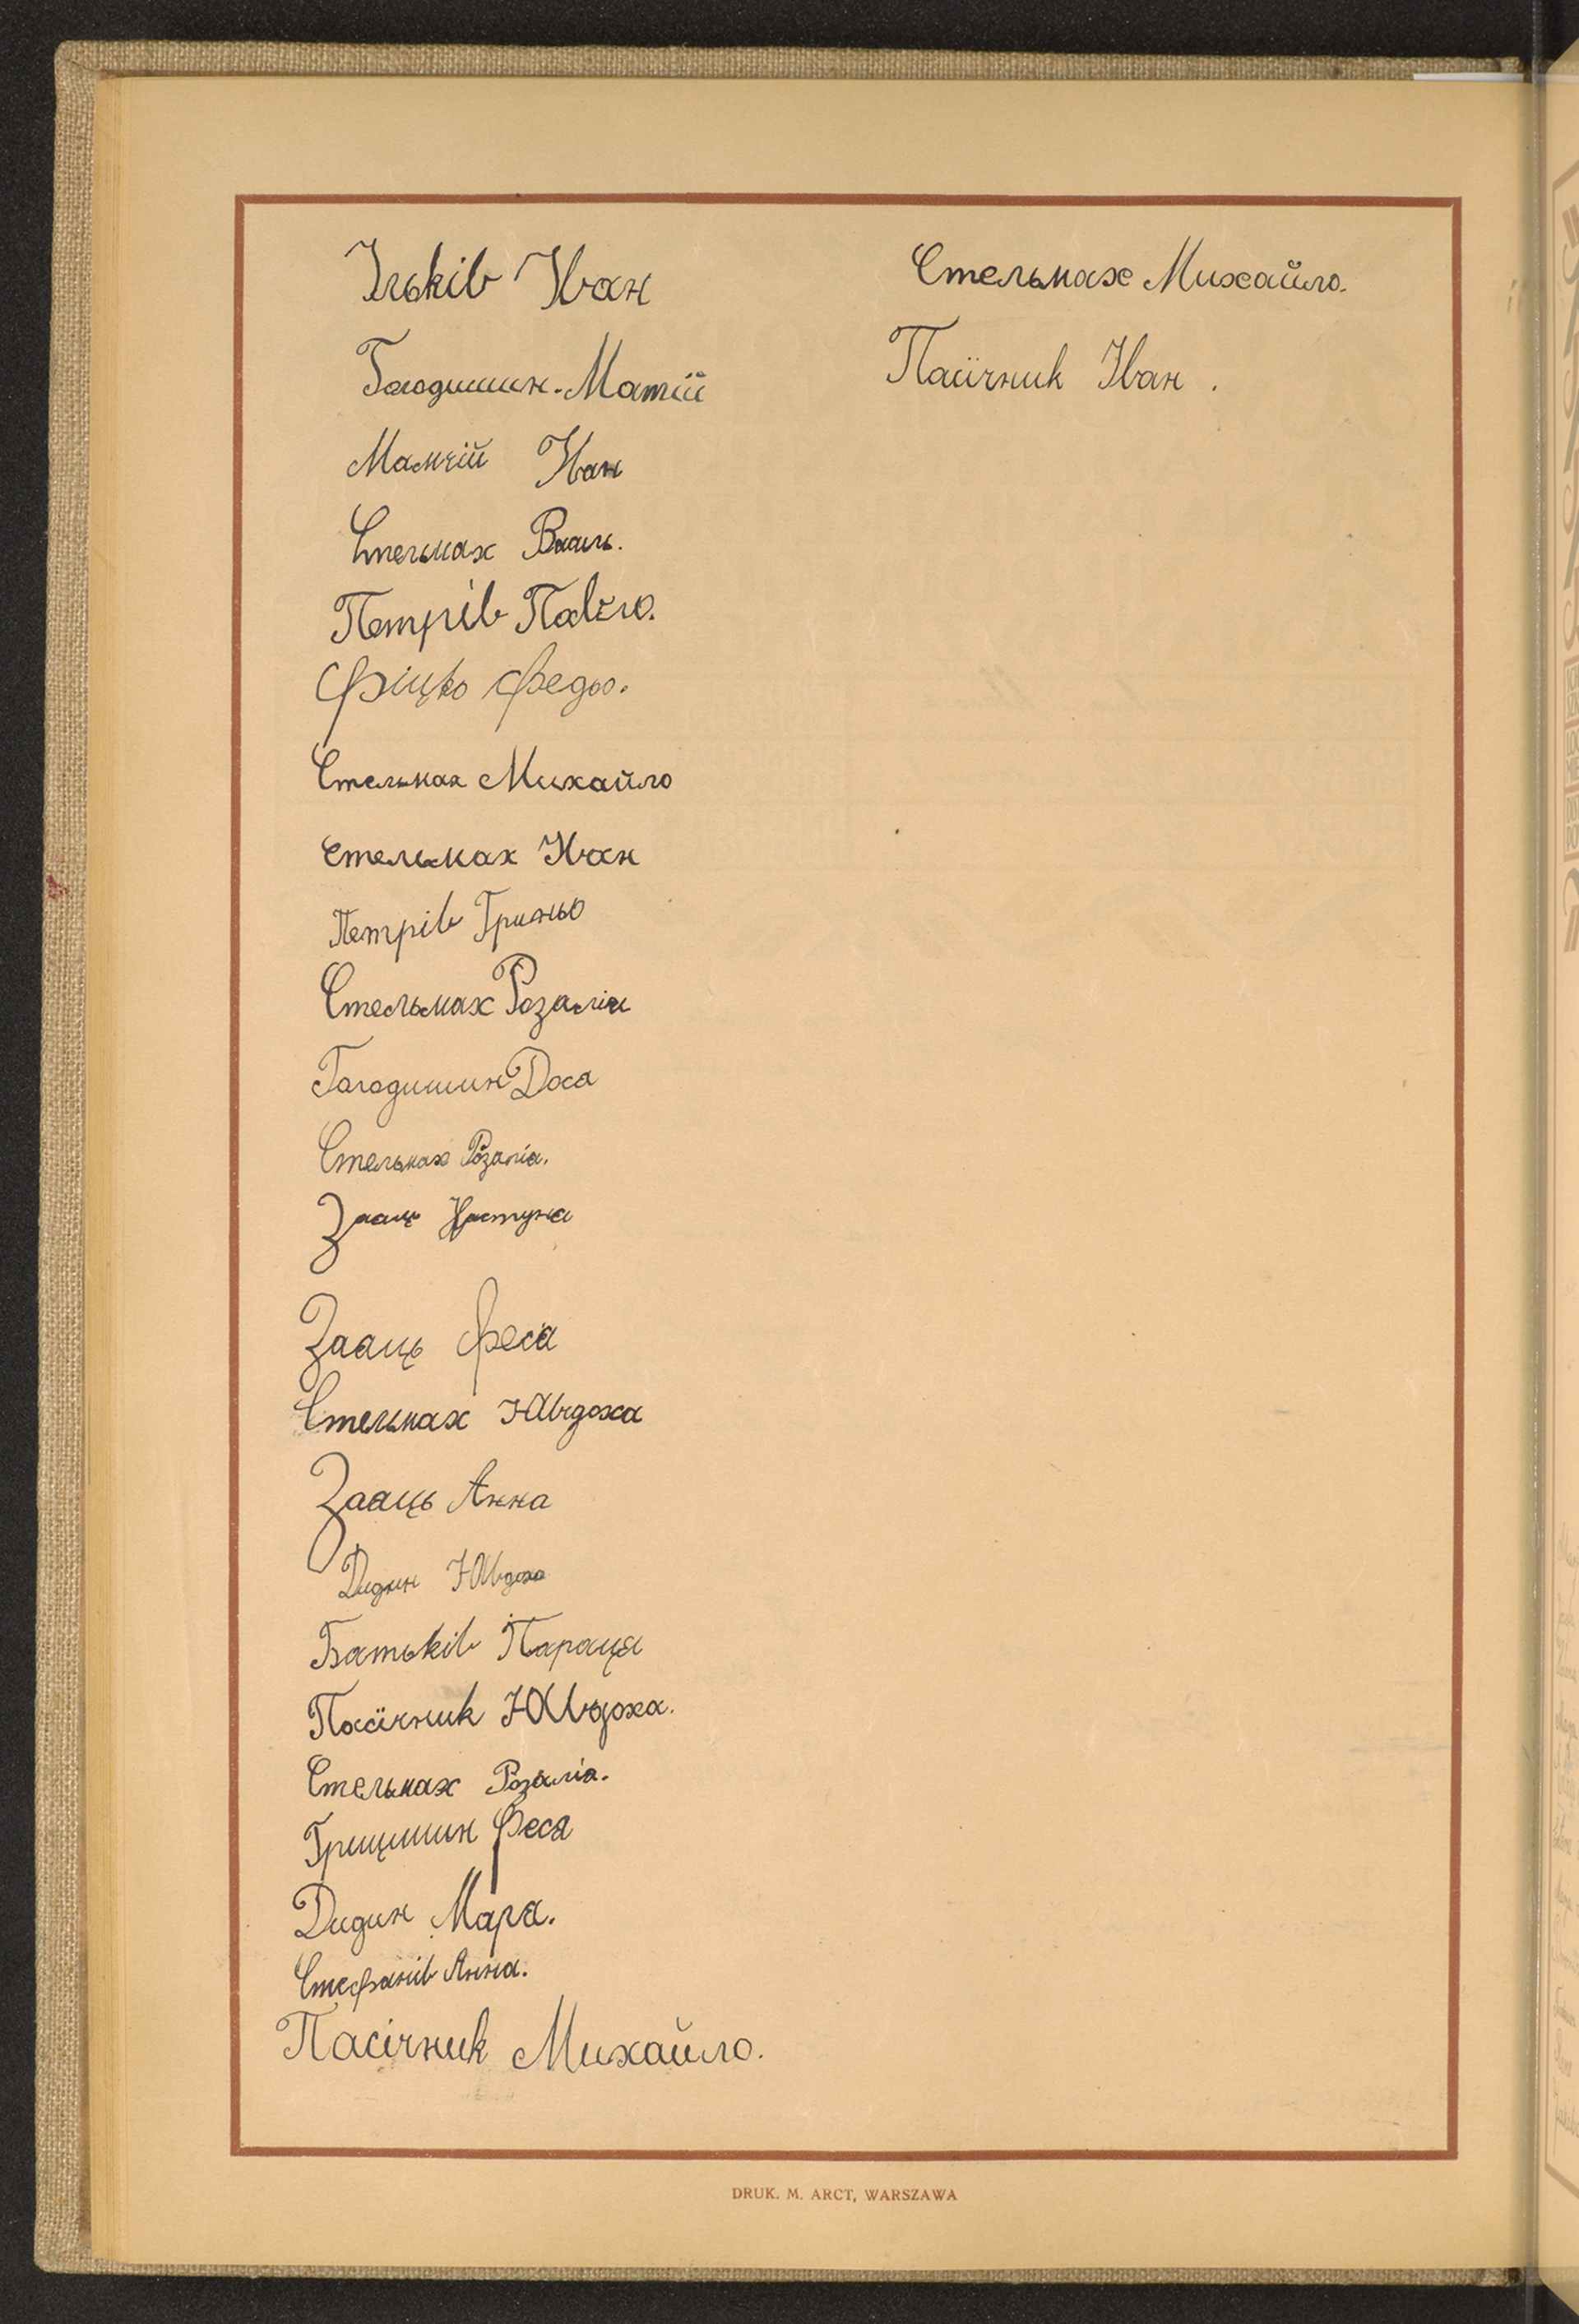 Ільків Іван
Гагодишин. Матій
Мамчій Іван
Стельмах Василь.
Петрів Павло.
Фіцко Федьо.
Стельмах Михайло
Стельмах Іван
Петрів Гриньо
Стельмах Розалія
Гагодишин Дося
Стельмах Розалія.
Заяць Настуня
Заяць Феся
Стельмах Явдоха
Заяць Анна
Дидин Явдоха
Батьків Параця
Пасічник Явдоха.
Стельмах Розалія.
Грицишин Феся
Дидин Мара.
Стефанів Анна.
Пасічник Михайло.
Стельмах Михайло.
Пасічник Іван.
DRUK. M. ARCT, WARSZAWA